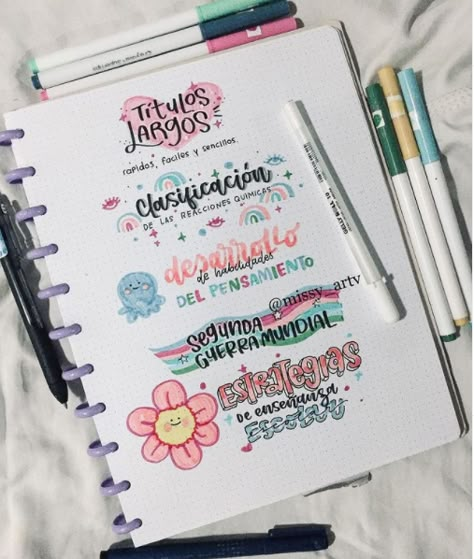 TÍTULOS
LARGOS
rapidos, faciles y sencillos.
clasificación
DE LAS REACCIONES QUIMICAS
desarrollo
de habilidades
DEL PENSAMIENTO
@missy_artv
SEGUNDA
GUERRA MUNDIAL
ESTRATEGIAS
DE enseñanza
ESCOLAR